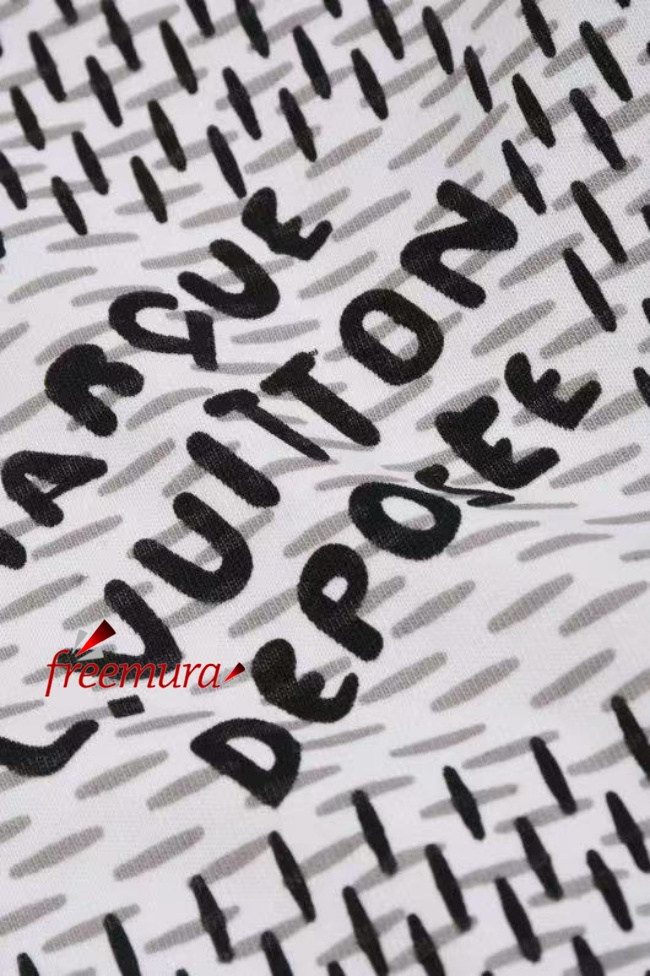 MARQUE
L.VUITTON
DEPOSEE
freemura